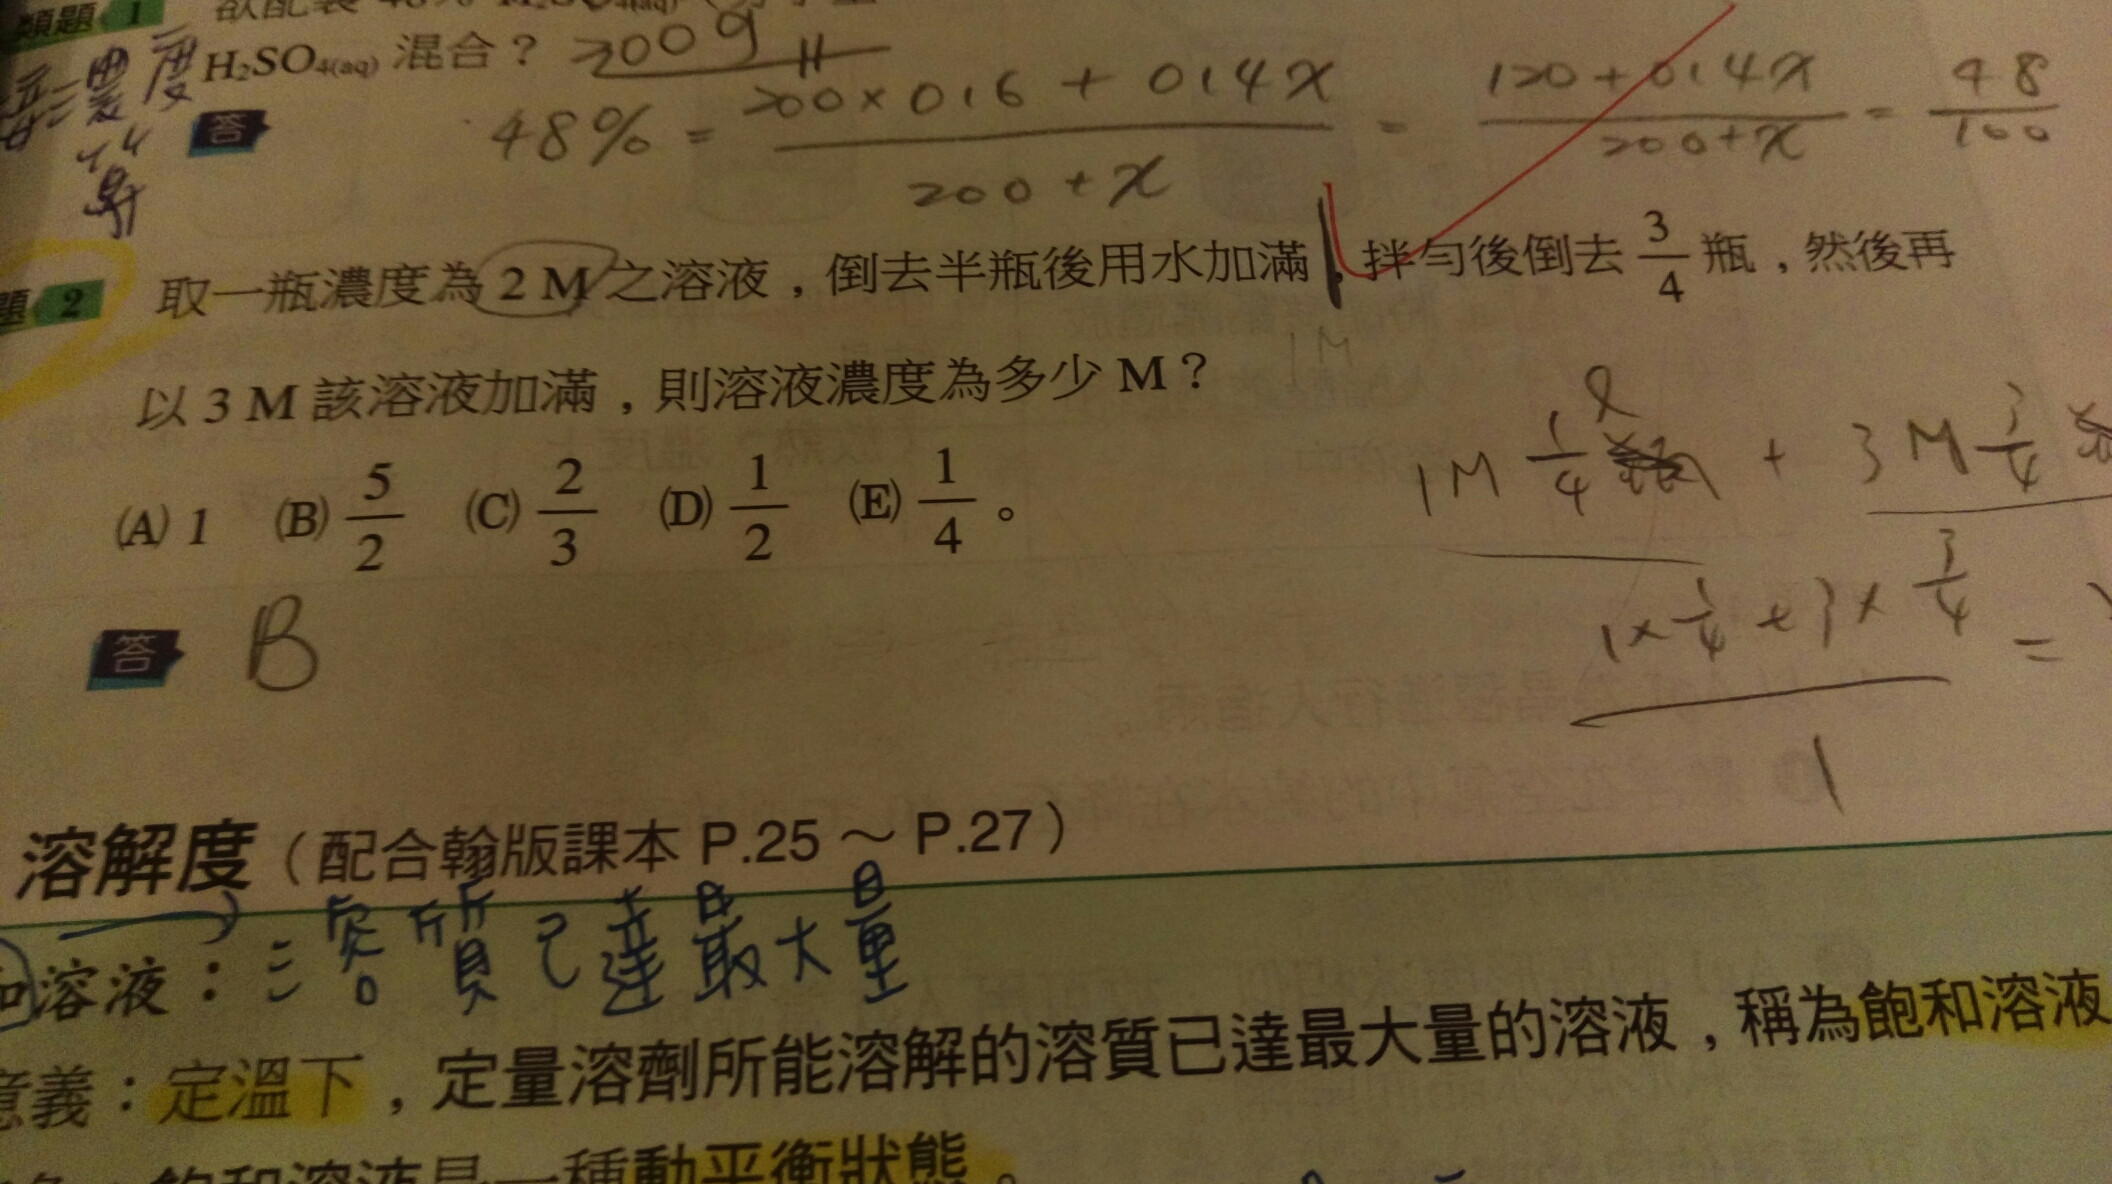 類題 1
H₂SO₄(aq) 混合？ 200g
濃度
算
答 48% = 200×0.6 + 0.4x / 200 + x = 120 + 0.4x / 200 + x = 48 / 100
題 2 取一瓶濃度為 2 M 之溶液，倒去半瓶後用水加滿，拌勻後倒去 3/4 瓶，然後再
1M
以 3 M 該溶液加滿，則溶液濃度為多少 M？
(A) 1 (B) 5/2 (C) 2/3 (D) 1/2 (E) 1/4 。
1M 1/4 + 3M 3/4
答 B
1×1/4 + 3×3/4 / 1 =
溶解度（配合翰版課本 P.25 ～ P.27）
和溶液：溶質已達最大量
意義：定溫下，定量溶劑所能溶解的溶質已達最大量的溶液，稱為飽和溶液
飽和溶液是一種動平衡狀態。